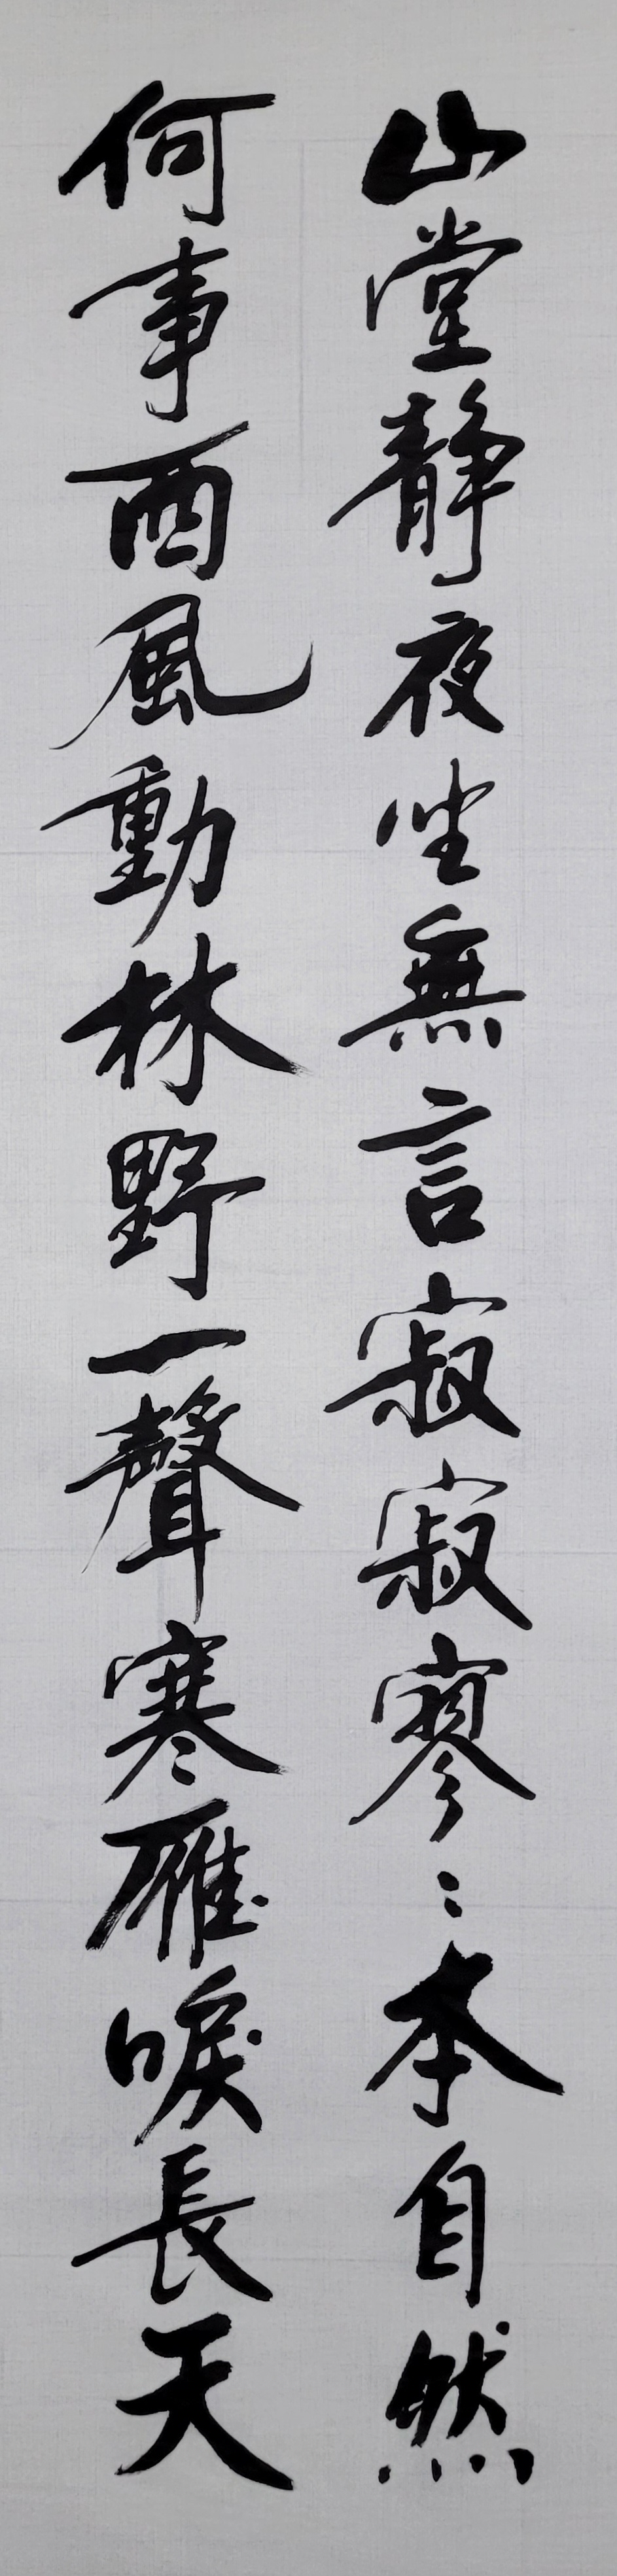 山堂靜夜坐無言寂寂寥〻本自然
何事西風動林野一聲寒雁唳長天